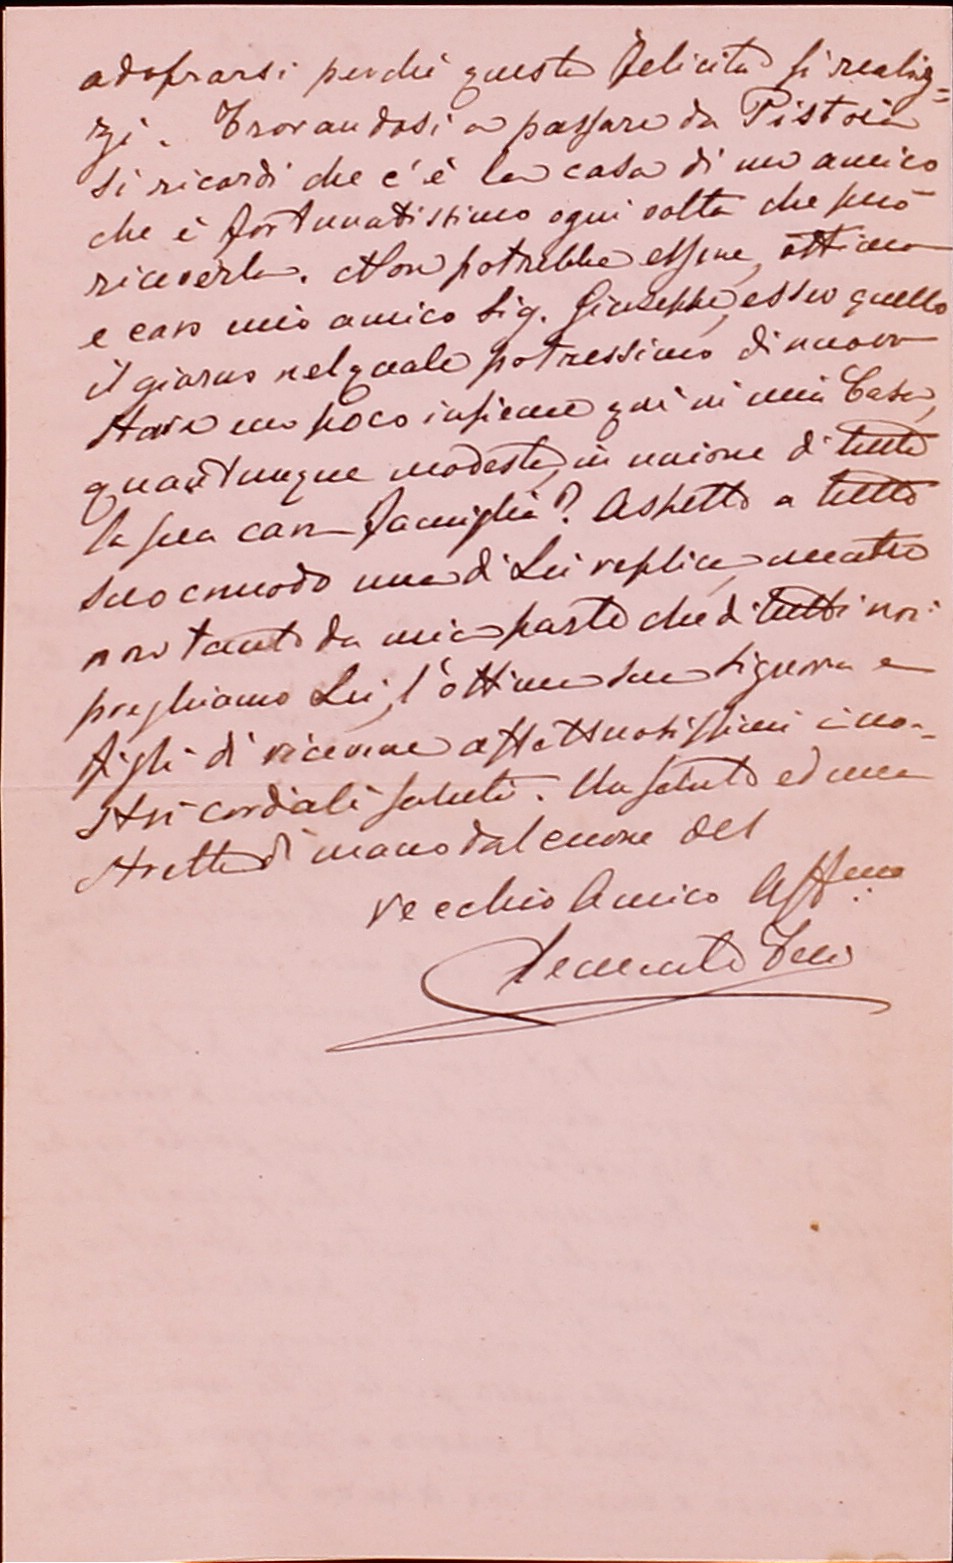 adoprarsi perchè questa felicità si realiz=
zi. Trovandosi a passare da Pistoia
si ricordi che c'è la casa di un amico
che è fortunatissimo ogni volta che può
riceverla. Non potrebbe essere, ottimo
e caro mio amico Sig. Giuseppe, esser quello
il giorno nel quale potressimo di nuovo
stare un poco insieme qui in mia Casa,
quantunque modesta, in unione di tutta
la sua cara famiglia? Aspetto a tutto
suo comodo una di Lei replica, mentre
non tanto da mia parte che di tutti noi
preghiamo Lei, l'ottima sua signora e
figli di ricevere affettuosissimi i no-
stri cordiali saluti. Un saluto ed una
stretta di mano dal cuore del
vecchio Amico Aff.mo